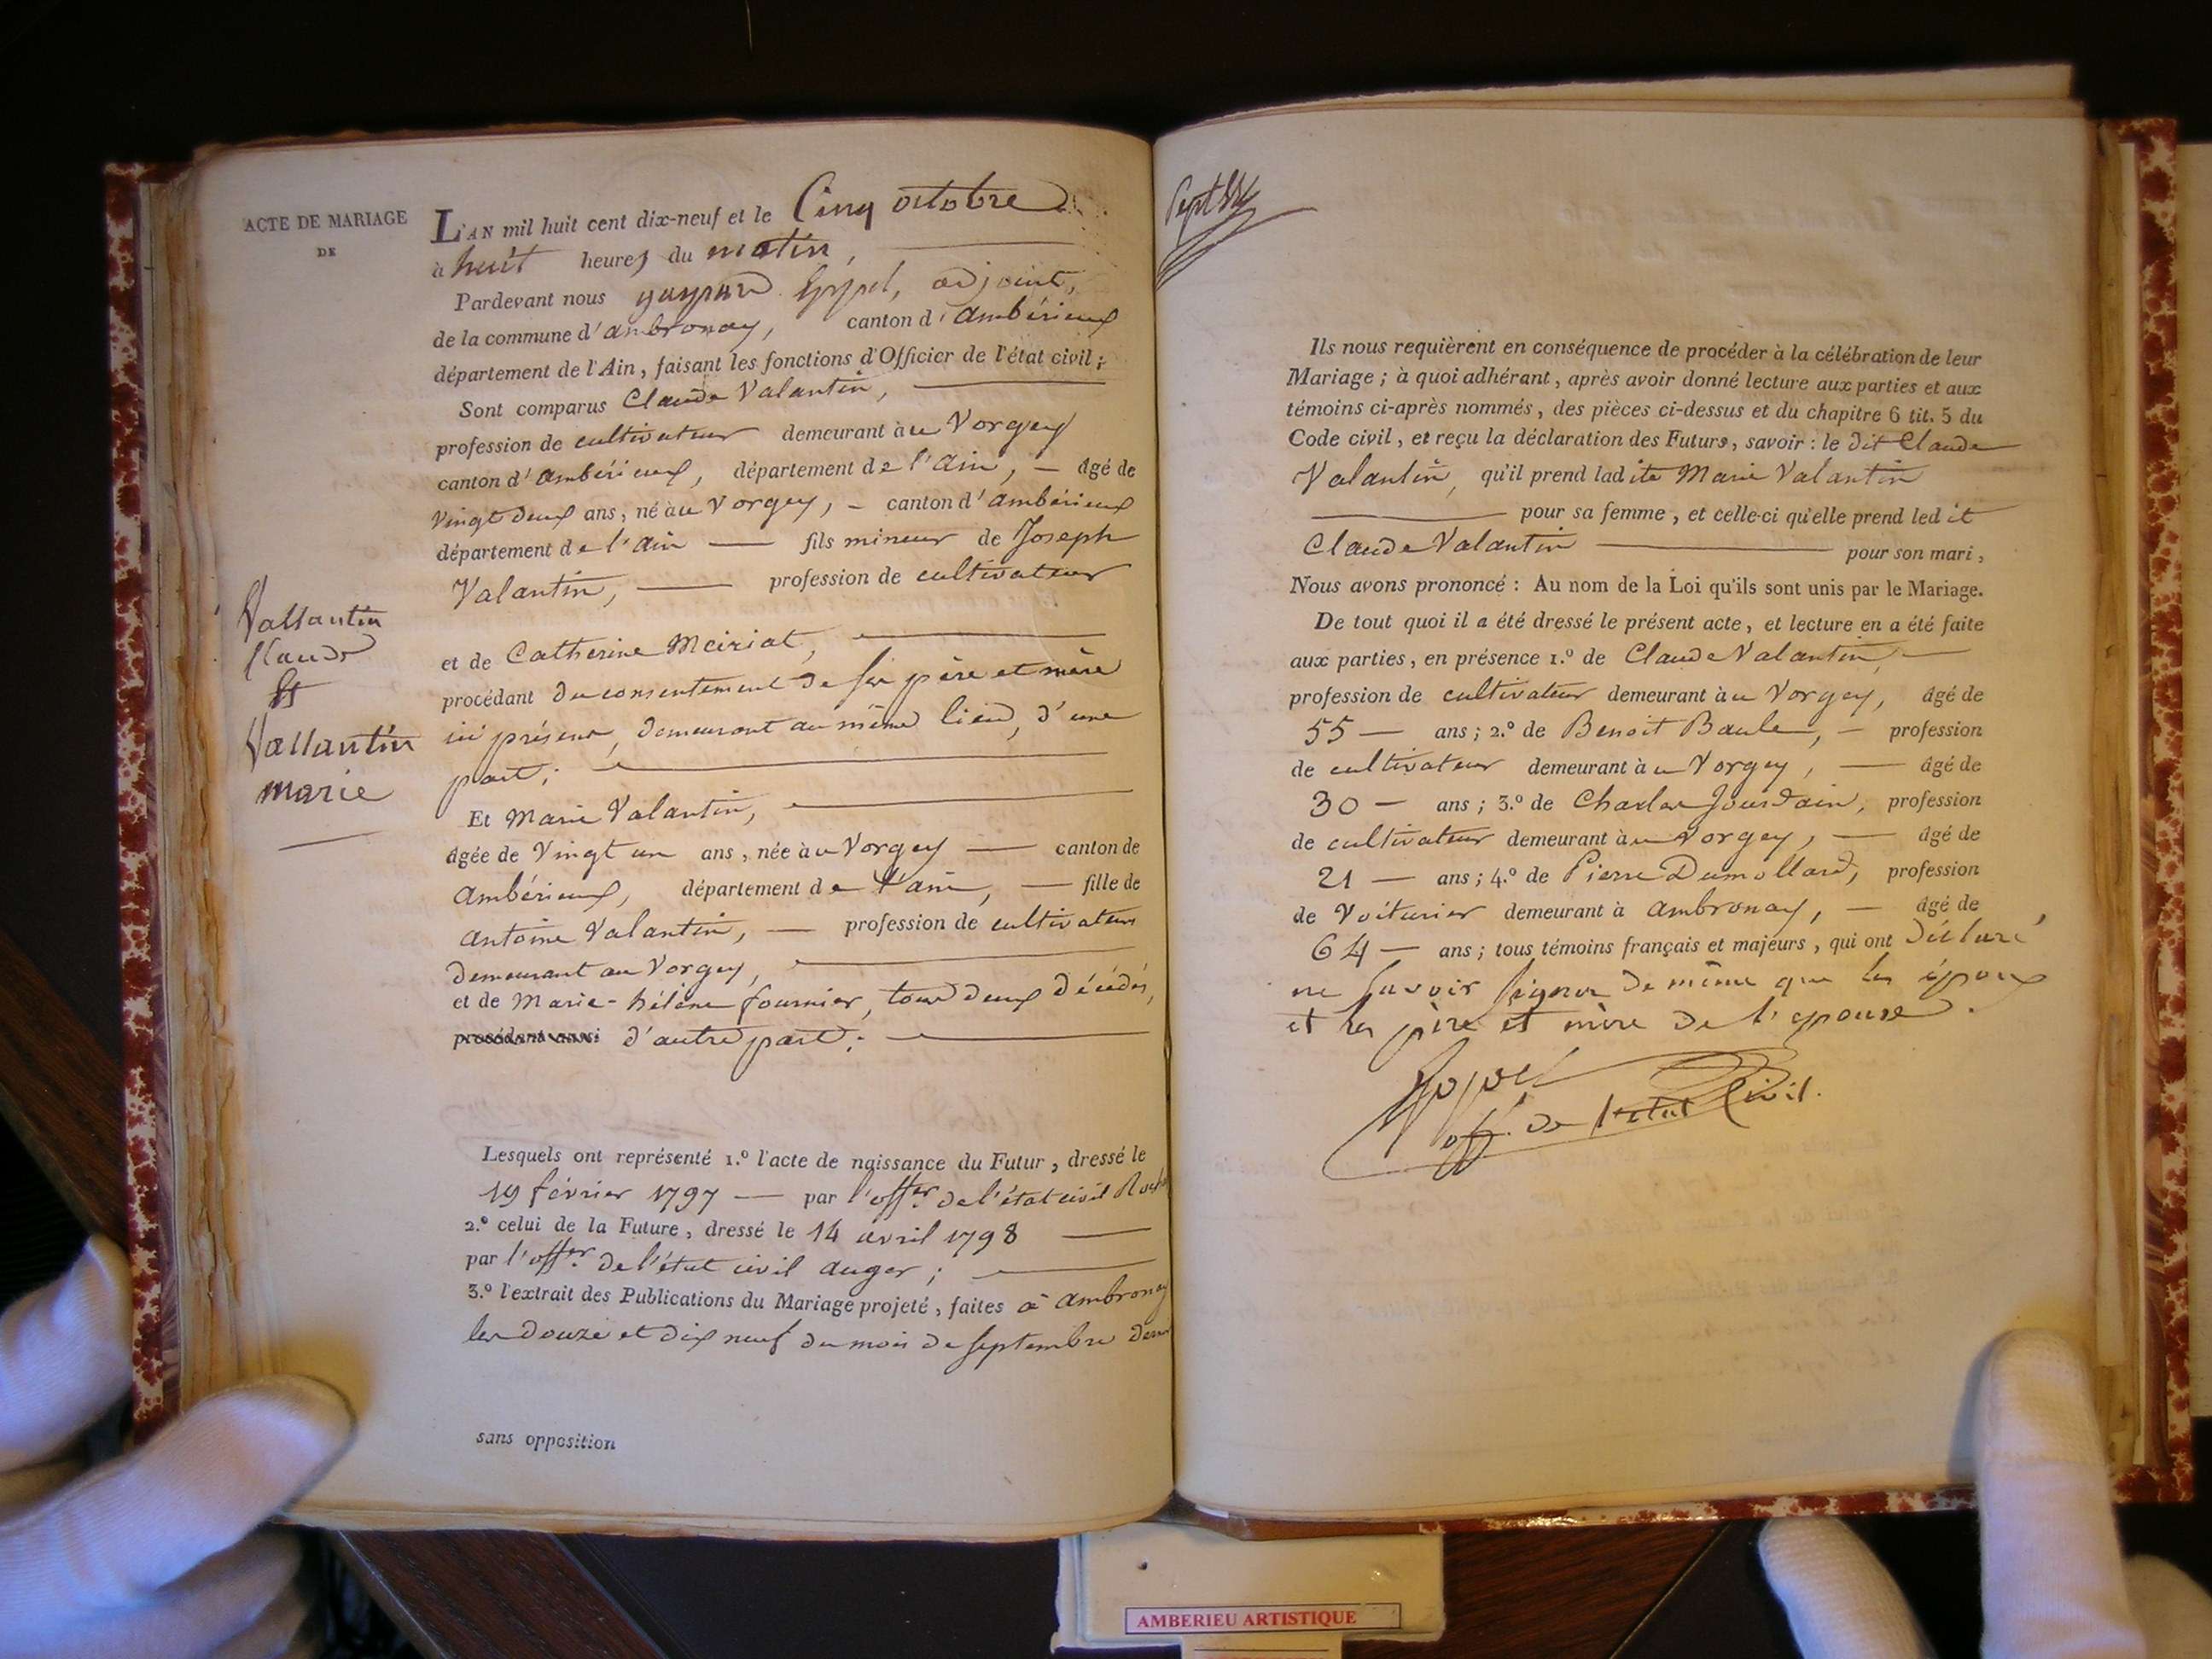 ACTE DE MARIAGE
DE
Vallantin
Claude
Et
Vallantin
marie
L'AN mil huit cent dix-neuf et le Cinq octobre
à huit heures du matin,
Pardevant nous gaspard adjoint,
de la commune d'ambronay, canton d'ambérieux
département de l'Ain, faisant les fonctions d'Officier de l'état civil;
Sont comparus Claude Valantin,
profession de cultivateur demeurant àu Vorgey
canton d'ambérieux, département de l'ain, — âgé de
vingt deux ans, né àu Vorgey, — canton d'ambérieux
département de l'ain — fils mineur de Joseph
Valantin, — profession de cultivateur
et de Catherine Meiriat,
procédant du consentement de ses père et mère
ici présens, demeurant au même lieu, d'une
part;
Et Marie Valantin,
âgée de Vingt un ans, née àu Vorgey — canton de
ambérieux, département de l'ain, — fille de
antoine Valantin, — profession de cultivateur
demeurant au Vorgey,
et de Marie-hélène fournier, tous deux décédés,
procédant aussi d'autre part;
Lesquels ont représenté 1.º l'acte de naissance du Futur, dressé le
19 février 1797 — par l'offer. de l'état civil
2.º celui de la Future, dressé le 14 avril 1798
par l'offer. de l'état civil auger;
3.º l'extrait des Publications du Mariage projeté, faites à ambronay
les douze et dix neuf du mois de septembre
sans opposition
Ils nous requièrent en conséquence de procéder à la célébration de leur
Mariage; à quoi adhérant, après avoir donné lecture aux parties et aux
témoins ci-après nommés, des pièces ci-dessus et du chapitre 6 tit. 5 du
Code civil, et reçu la déclaration des Futurs, savoir: le dit Claude
Valantin, qu'il prend ladite Marie Valantin
— pour sa femme, et celle-ci qu'elle prend ledit
Claude Valantin — pour son mari,
Nous avons prononcé: Au nom de la Loi qu'ils sont unis par le Mariage.
De tout quoi il a été dressé le présent acte, et lecture en a été faite
aux parties, en présence 1.º de Claude Valantin, —
profession de cultivateur demeurant àu Vorgey, âgé de
55 — ans; 2.º de Benoit Baule, — profession
de cultivateur demeurant àu Vorgey, — âgé de
30 — ans; 3.º de Charles Jourdain, profession
de cultivateur demeurant àu Vorgey, — âgé de
21 — ans; 4.º de Pierre Dumollard, profession
de Voiturier demeurant à ambronay, — âgé de
64 — ans; tous témoins français et majeurs, qui ont déclaré
ne savoir signer de même que les époux
et les père et mère de l'epouse.
off. de l'etat Civil.
AMBERIEU ARTISTIQUE